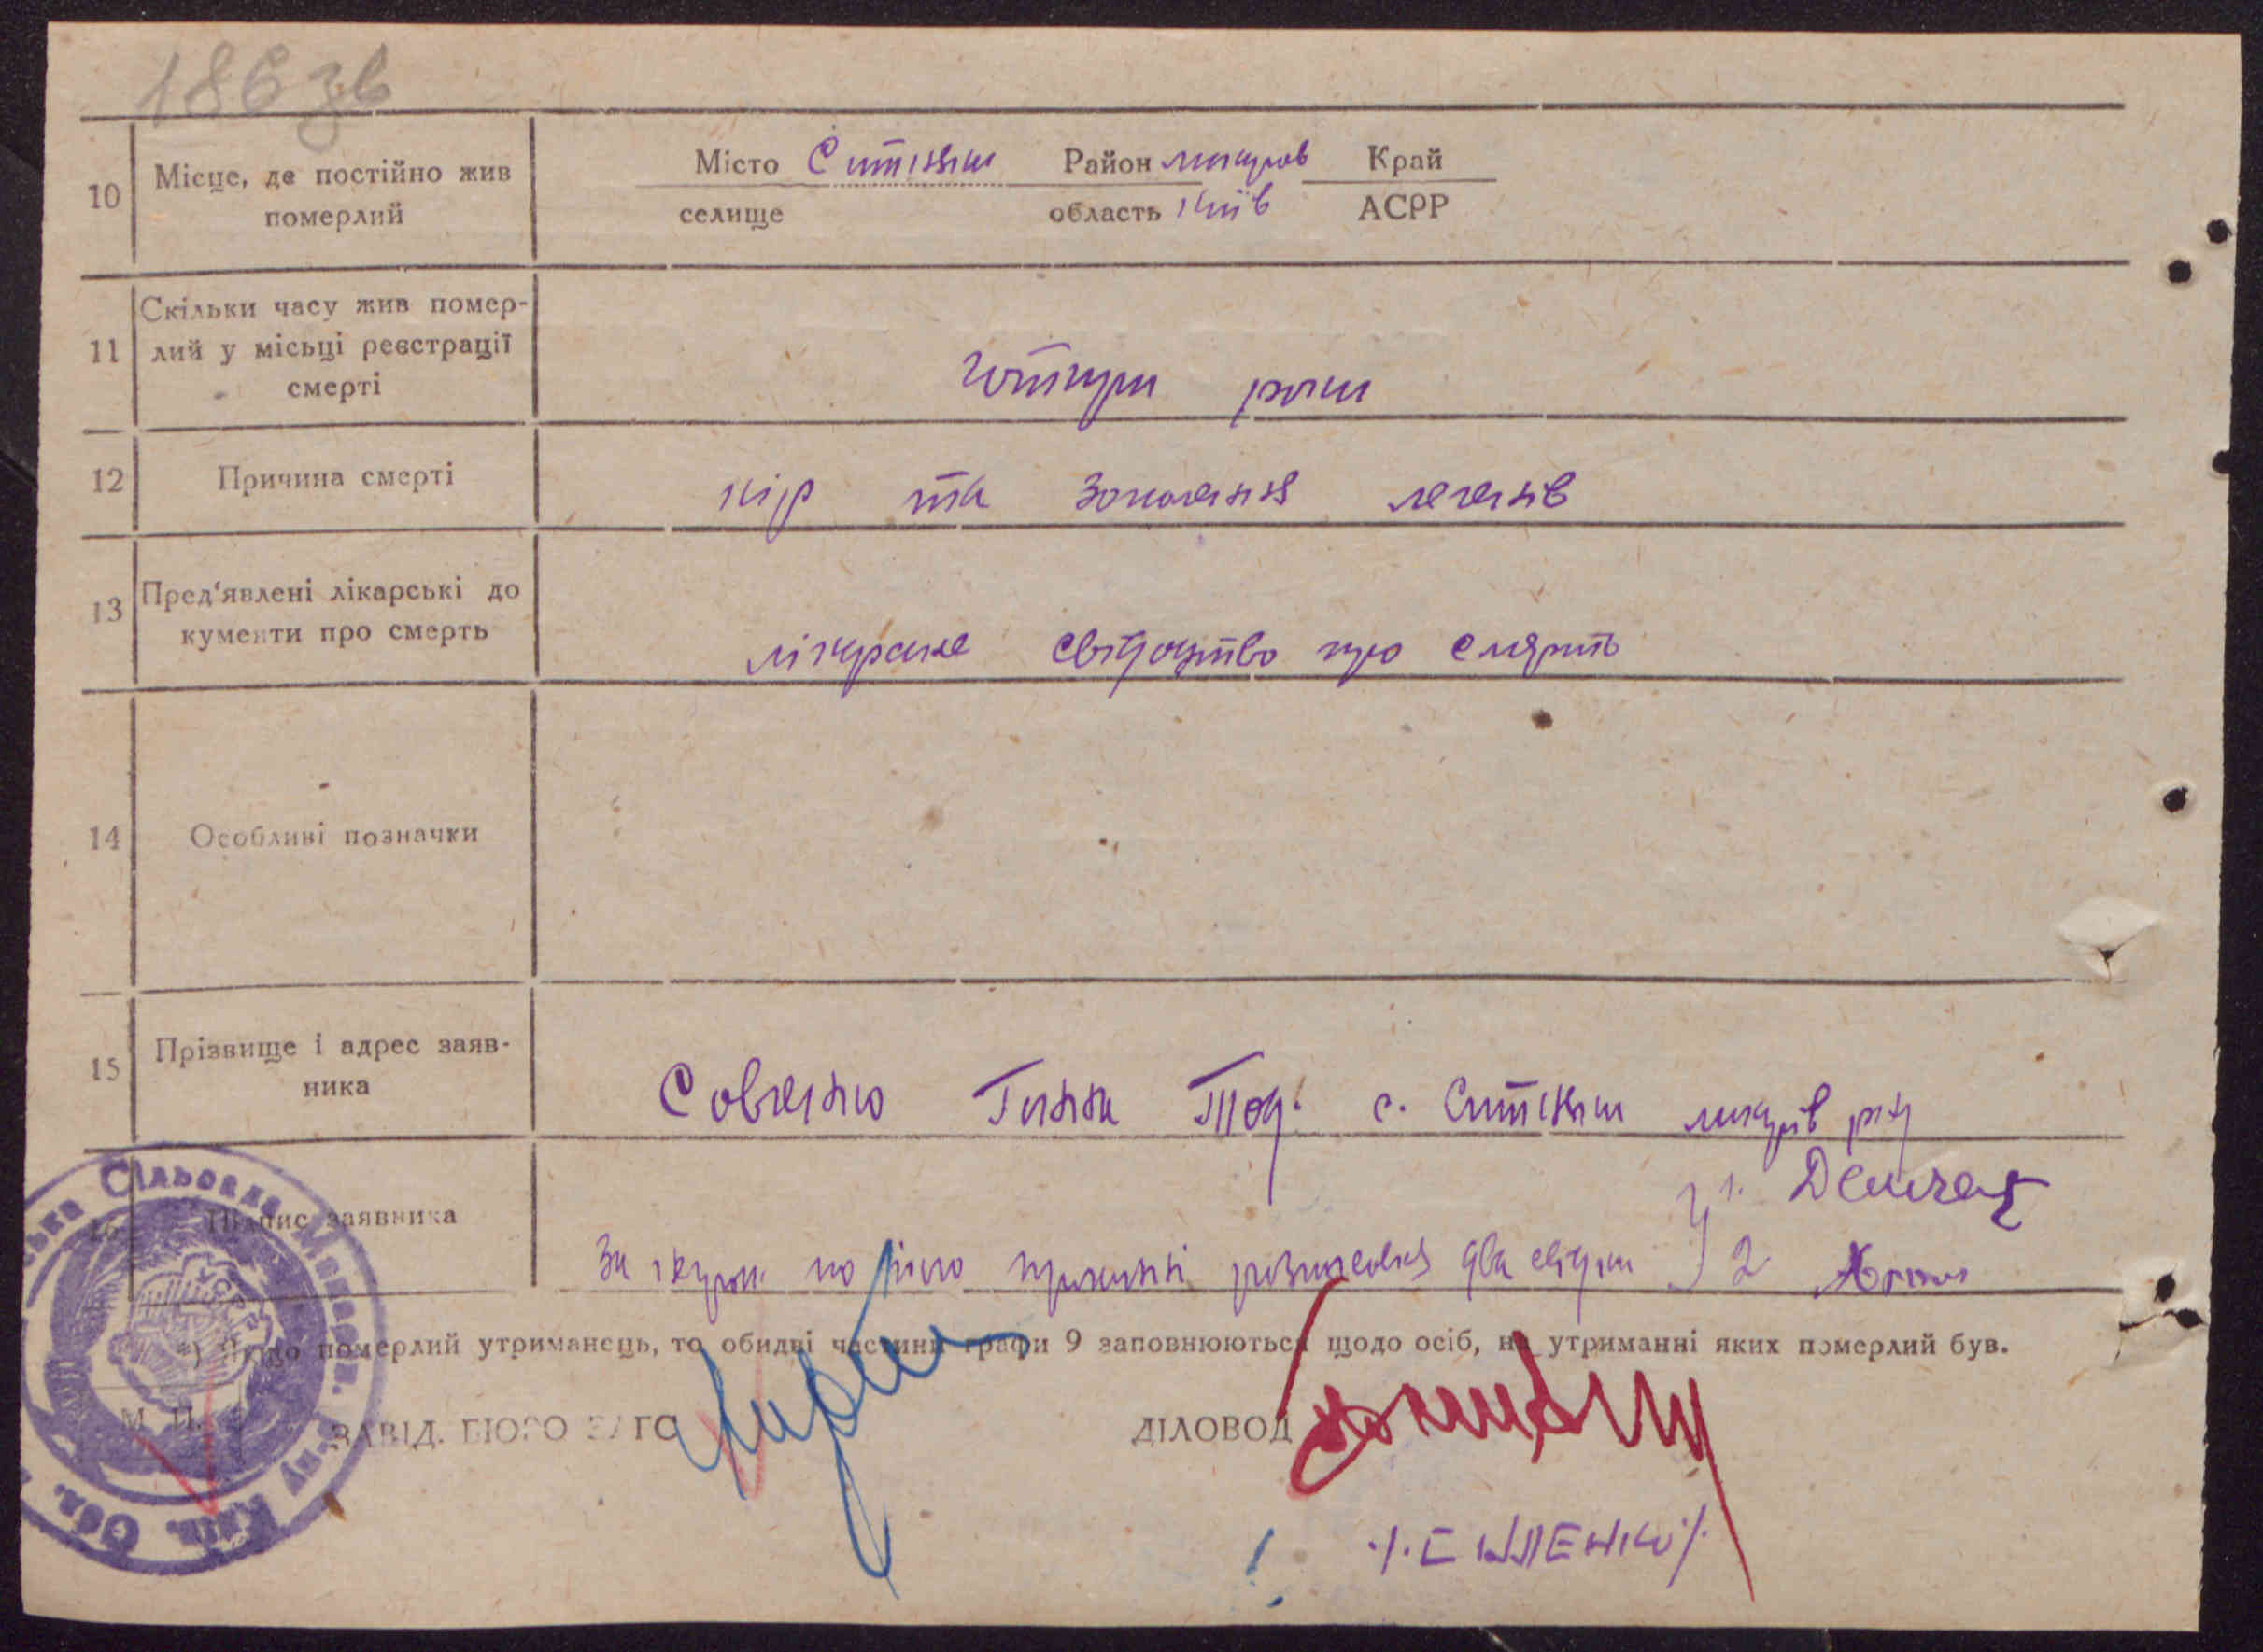 186 зв
10 Місце, де постійно жив померлий
Місто Ситняки Район макаров Край
селище область Київ АСРР
11 Скільки часу жив помер-
лий у місьці реєстрації
смерті
чотири роки
12 Причина смерті
кір та запалення легенів
13 Пред'явлені лікарські до
кументи про смерть
лікарске свідоцтво про смерть
14 Особливі позначки
15 Прізвище і адрес заяв-
ника
Совгенко Ганна Тод. с. Ситняки макарів р-ну
16 Підпис заявника
1. Демчен
За його проханні розписалися два свідки 2
*) Якщо померлий утриманець, то обидві частини графи 9 заповнюються щодо осіб, на утриманні яких померлий був.
М. П. ЗАВІД. БЮРО ЗАГС ДІЛОВОД
Сільрада Макарів. р-ну Київ. Обл.
УСРР